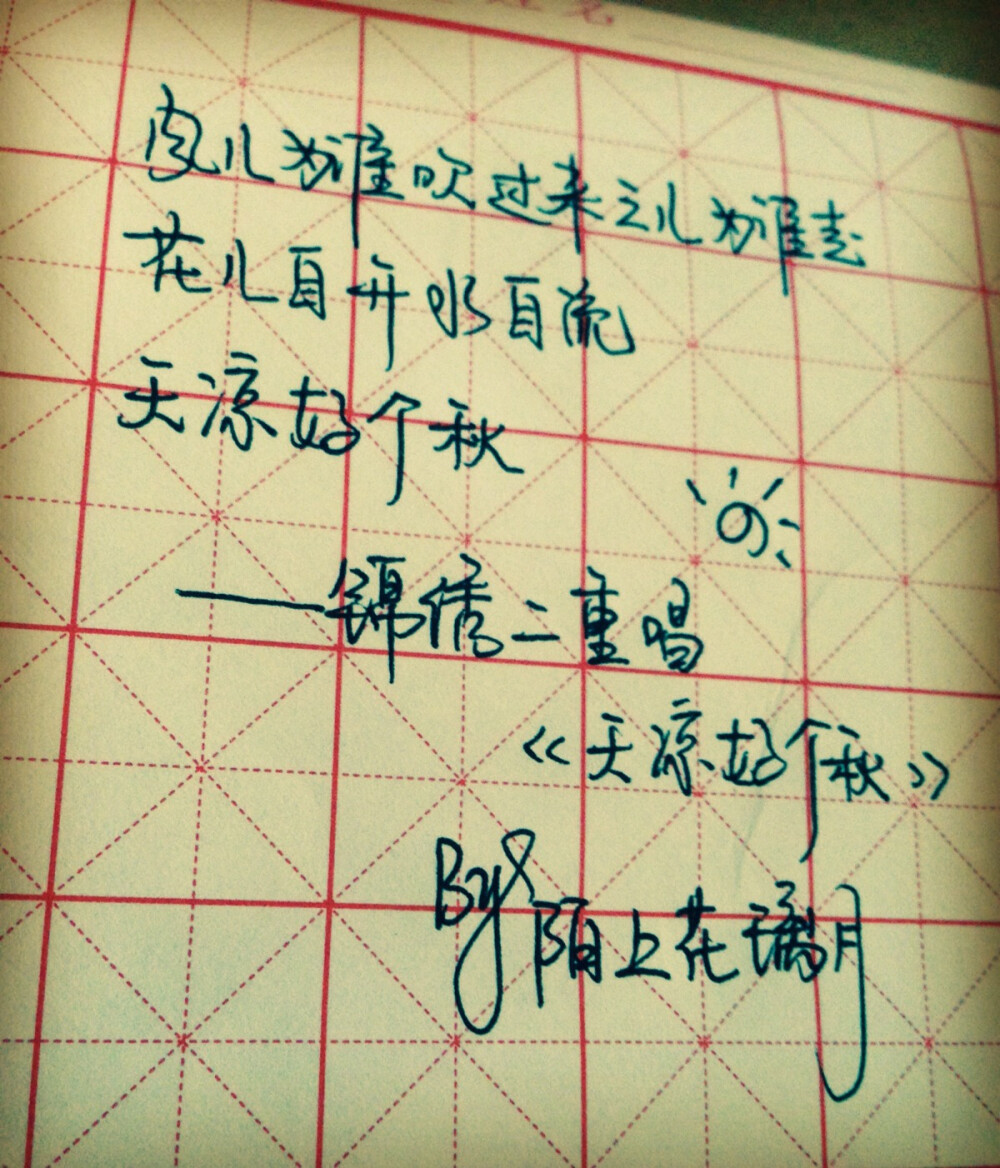 风儿为谁吹过来云儿为谁去
花儿自开水自流
天凉好个秋
——锦绣二重唱
《天凉好个秋》
By 陌上花璃月